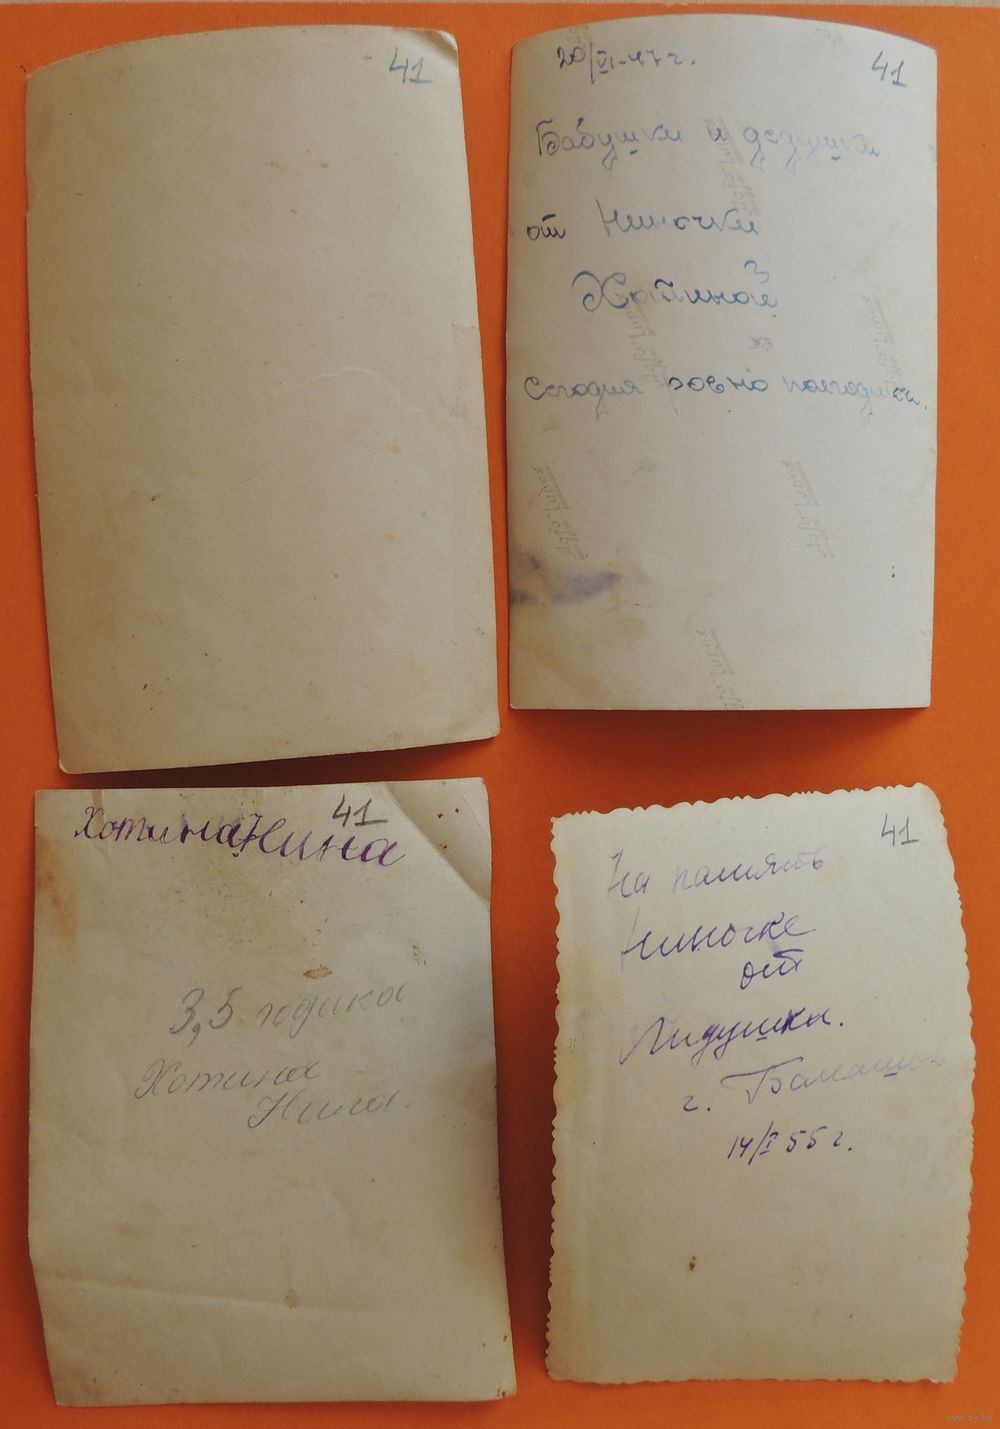 41
20/VI-47г.
41
Бабушки и дедушки
от Ниночки
Хотиной
Сегодня ровно полгодика.
41
Хотина Нина
3,5 годика
Хотина
Нина.
41
На память
Ниночке
от
Лидушки.
г. Балашов
14/I 55 г.
www.ay.by